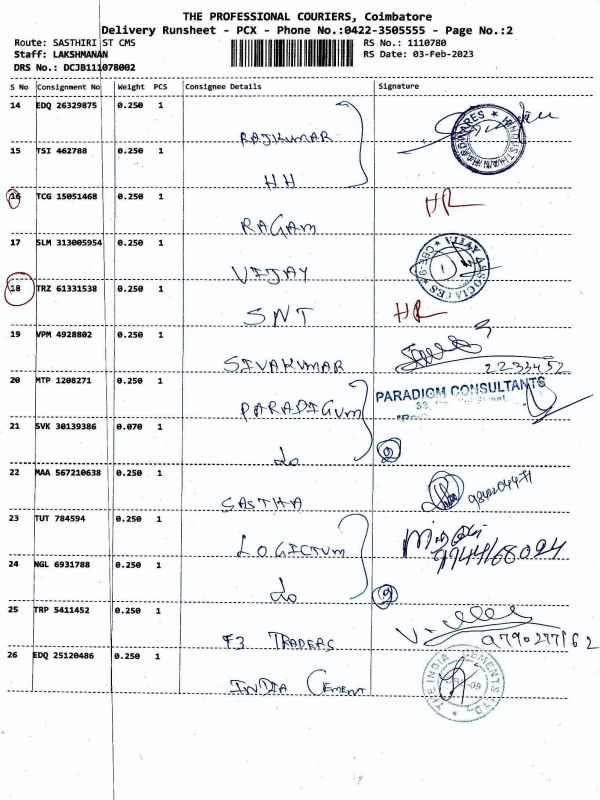 THE PROFESSIONAL COURIERS, Coimbatore
Delivery Runsheet - PCX - Phone No.:0422-3505555 - Page No.:2
Route: SASTHIRI ST CMS
RS No.: 1110780
Staff: LAKSHMANAN
RS Date: 03-Feb-2023
DRS No.: DCJB111078002
S No Consignment No Weight PCS Consignee Details Signature
14 EDQ 26329875 0.250 1
RAJKUMAR
HINDUSTHAN HARDWARES
15 TSI 462788 0.250 1
HH
16 TCG 15051468 0.250 1
RAGAM
17 SLM 313005954 0.250 1
VIJAY
VIJAY ASSOCIATES
18 TRZ 61331538 0.250 1
SNT
19 VPM 4928802 0.250 1
SIVAKUMAR
2233452
20 MTP 1208271 0.250 1
PARADIGUM
PARADIGM CONSULTANTS
21 SVK 30139386 0.070 1
do
2
22 MAA 567210638 0.250 1
SASTHA
23 TUT 784594 0.250 1
LOGICTUM
9944168024
24 NGL 6931788 0.250 1
do
2
25 TRP 5411452 0.250 1
F3 TRADERS
9790277162
26 EDQ 25120486 0.250 1
INDIA CEMENT
THE INDIA CEMENTS LTD